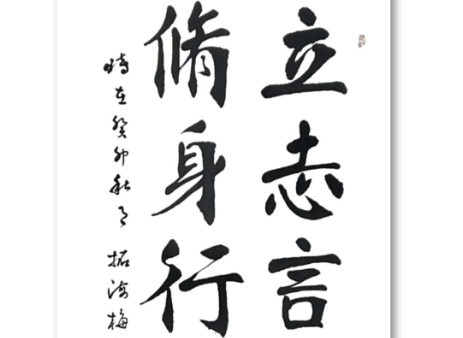 立志言
脩身行
時在癸卯秋月拓海梅